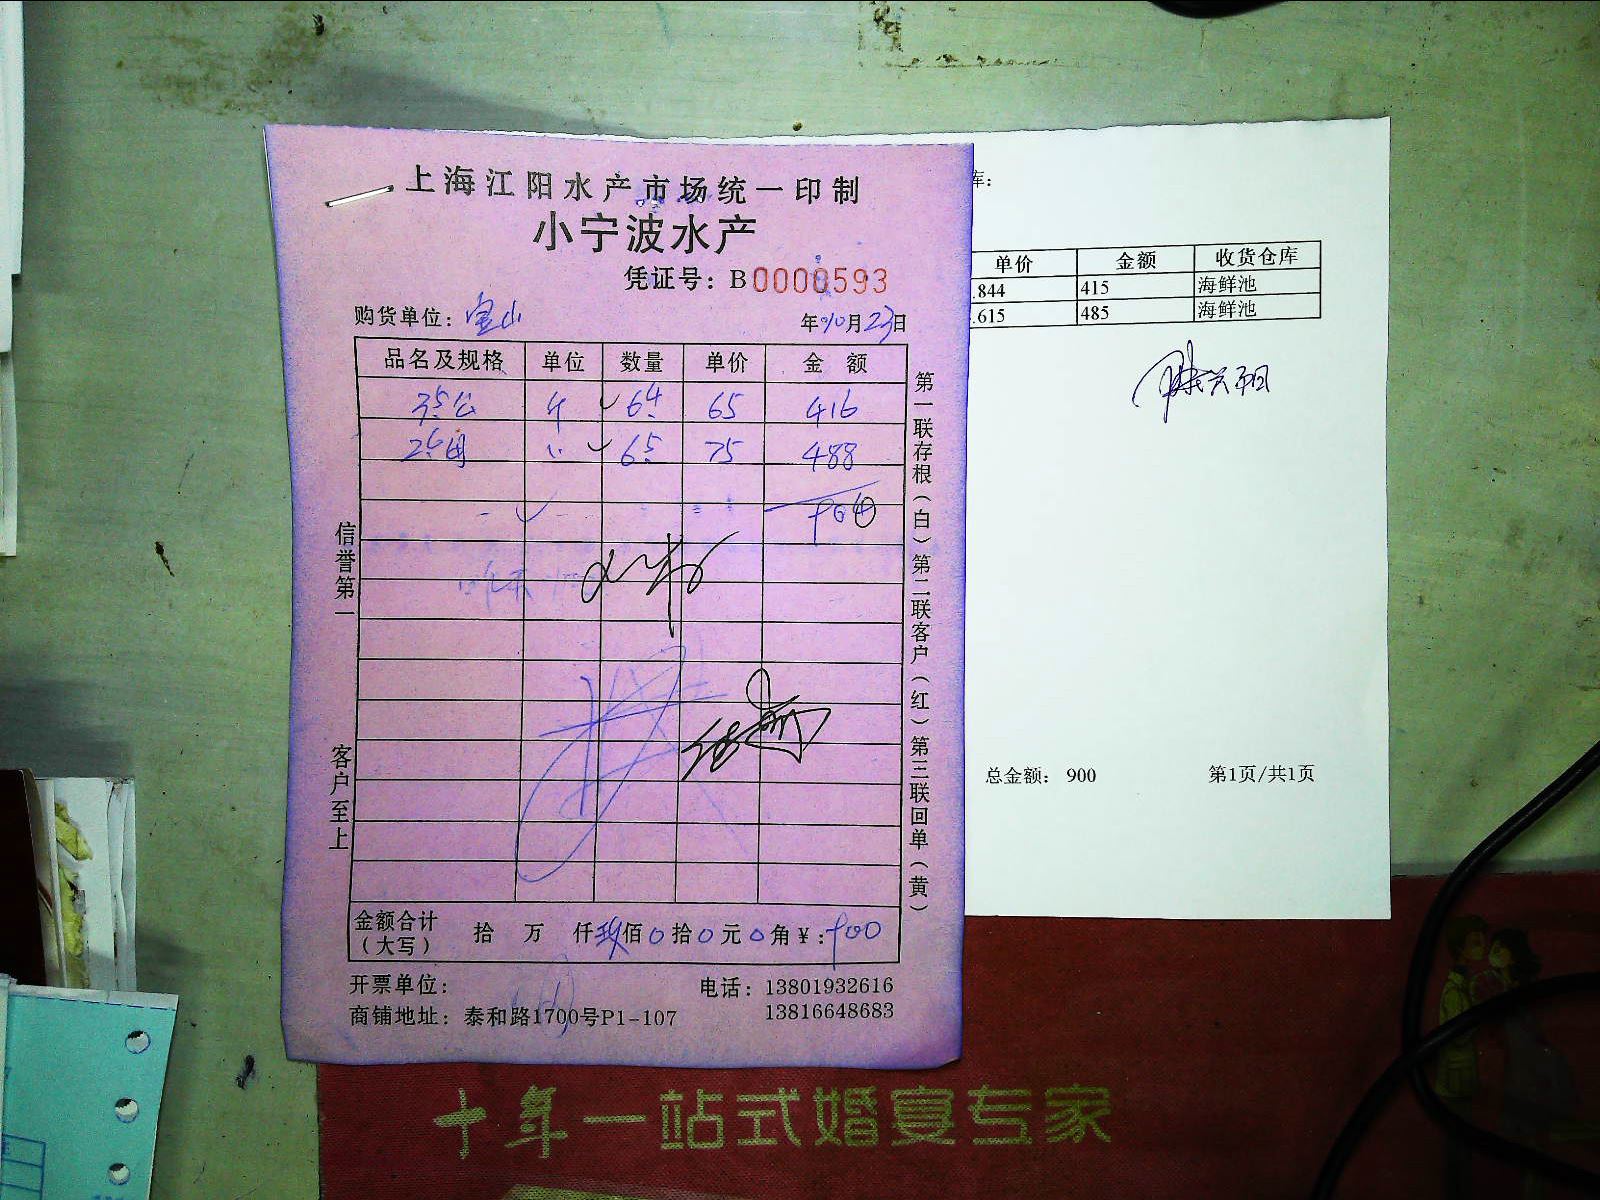 上海江阳水产市场统一印制
小宁波水产
凭证号：B0000593
购货单位：宝山
年10月23日
品名及规格 单位 数量 单价 金 额
35公 斤 64 65 416
25母 65 75 488
904
信誉第一
客户至上
第一联存根（白）第二联客户（红）第三联回单（黄）
金额合计（大写） 拾 万 仟玖佰0拾0元0角￥:900
开票单位：
电话：13801932616
13816648683
商铺地址：泰和路1700号P1-107
库：
单价 金额 收货仓库
.844 415 海鲜池
.615 485 海鲜池
总金额： 900
第1页/共1页
十年一站式婚宴专家